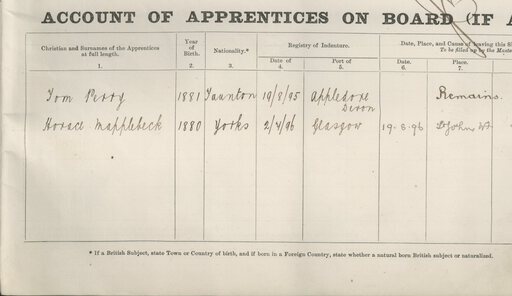 ACCOUNT OF APPRENTICES ON BOARD (IF A
Christian and Surnames of the Apprentices at full length. Year of Birth. Nationality.* Registry of Indenture. Date, Place, and Cause of leaving this S
To be filled up by the Maste
Date of Port of Date. Place.
1. 2. 3. 4. 5. 6. 7.
Tom Perry 1881 Taunton 19/8/95 Appledore Devon Remains.
Horace Mapplebeck 1880 Yorks 2/4/96 Glasgow 19.8.96 St John
* If a British Subject, state Town or Country of birth, and if born in a Foreign Country, state whether a natural born British subject or naturalized.